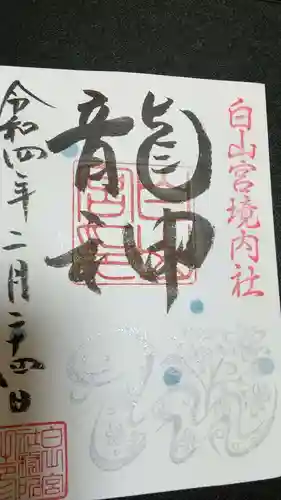 白山宮境内社
龍神
令和四年二月二十四日